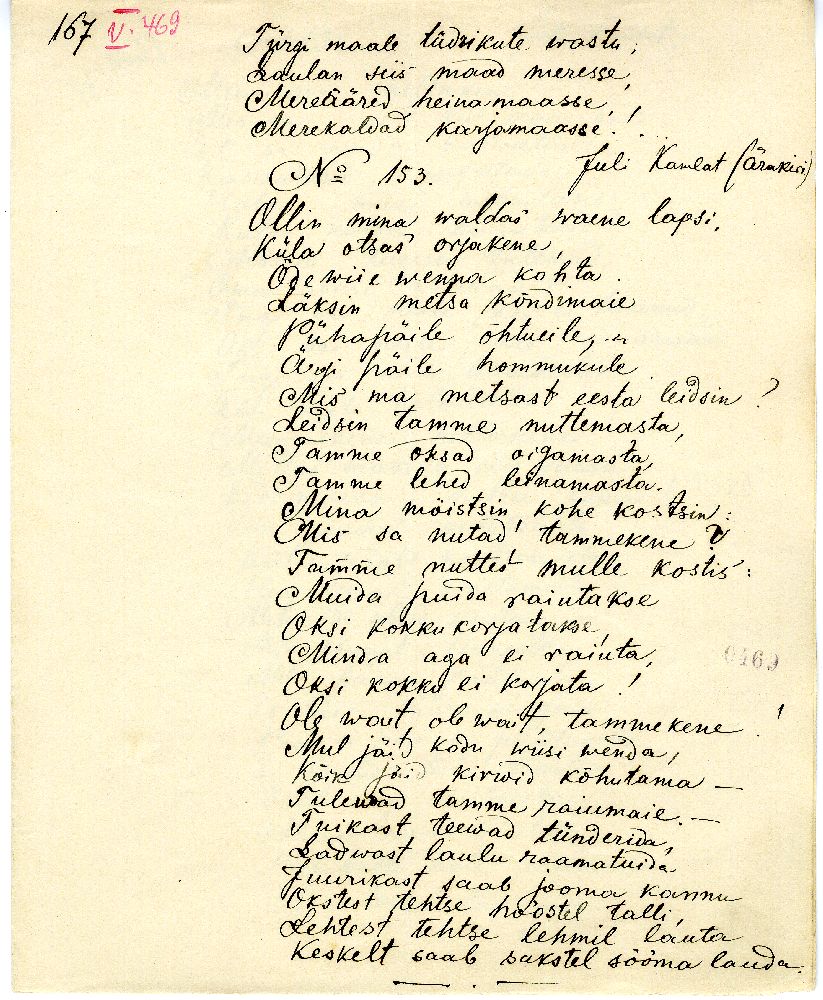 167 V. 469
Türgi maale tüdrikute wastu;
Laulan siis maad meresse,
Mereääred heinamaasse,
Merekaldad karjamaasse!
Juli Kamlat (ärakiri)
No 153.
Ollin mina waldas waene lapsi,
Küla otsas orjakene,
Õdewiie wenna kohta.
Läksin metsa kõndimaie
Pühapäile õhtueile,
Ärgi päile hommukule
Mis ma metsast eesta leidsin?
Leidsin tamme nuttemasta,
Tamme oksad oigamasta,
Tamme lehed leinamasta.
Mina mõistsin, kohe kostsin:
Mis sa nutad, tammekene?
Tamme nuttes mulle kostis:
Muida puida raiutakse
Oksi kokku korjatakse,
Minda aga ei raiuta,
0469
Oksi kokku ei korjata!
Ole wait, ole wait, tammekene!
Mul jäid kodu wiisi wenda,
Kõik jäid kirwid kõhutama —
Tulewad tamme raiumaie. —
Tuikast teewad tünderida,
Ladwast laulu raamatuida
Juurikast saab jooma kannu
Okstest tehtse hoostel talli,
Lehtest tehtse lehmil lauta
Keskelt saab sakstel sööma lauda.